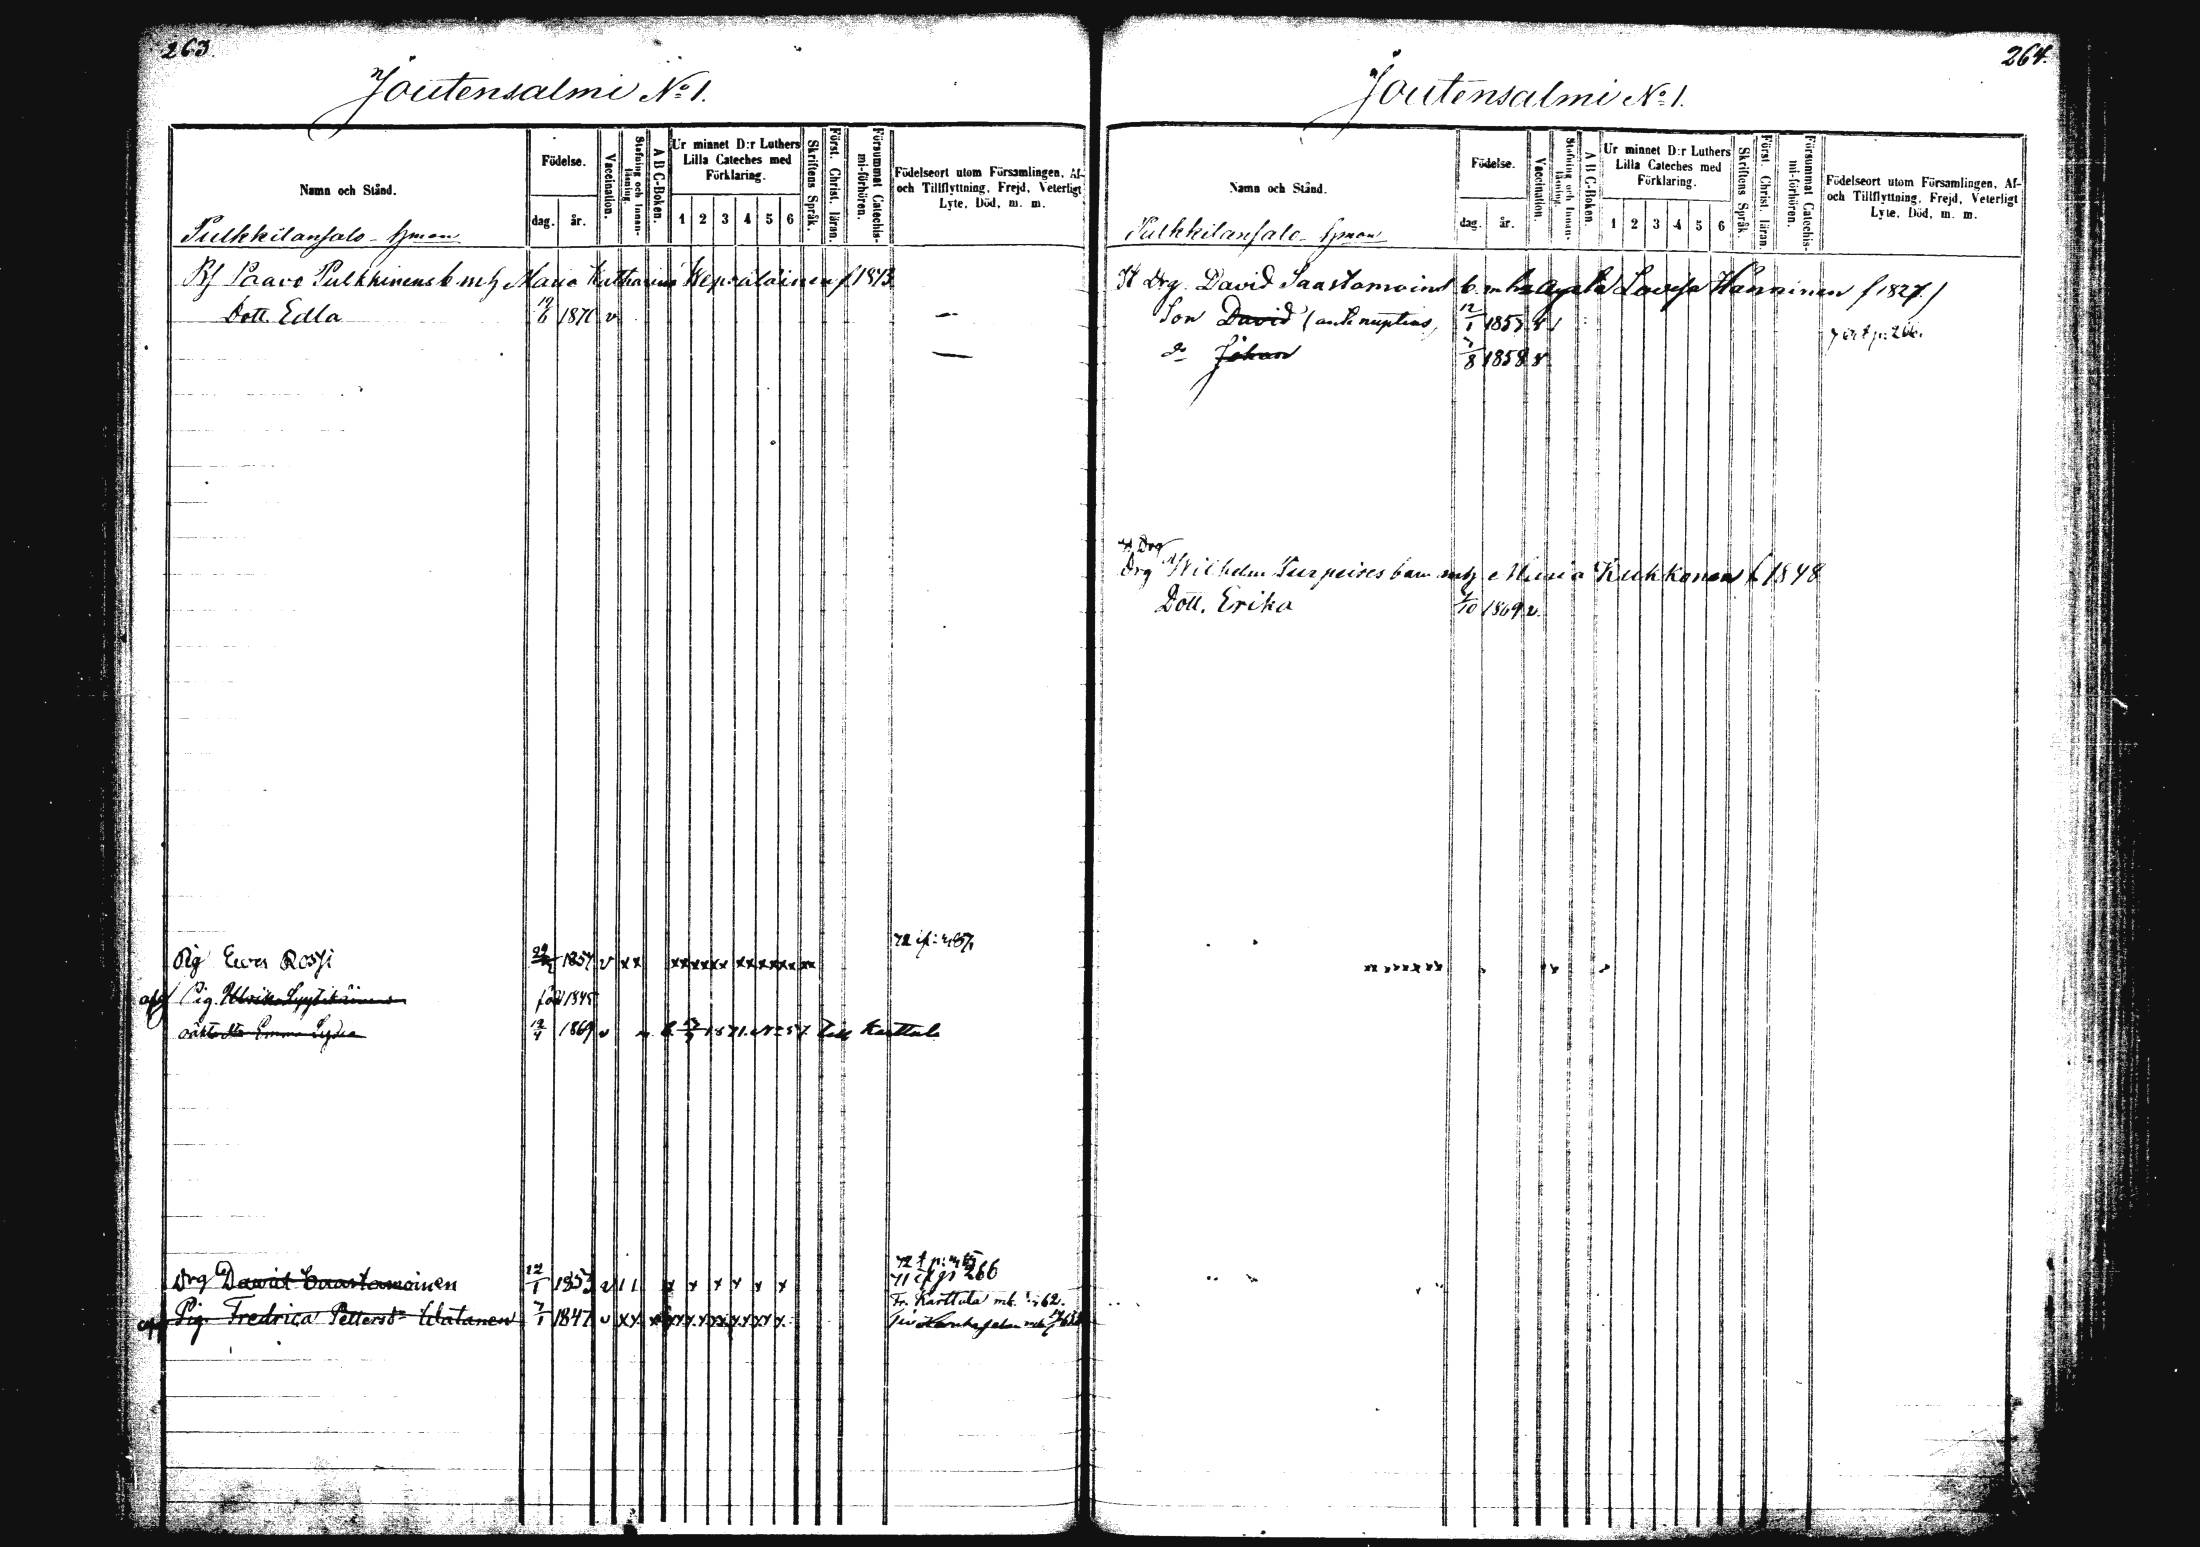 263.
Joutensalmi No 1.
Namn och Stånd.
Födelse.
dag. år.
Vaccination.
Stafning och Innan-läsning.
A B C-Boken.
Ur minnet D:r Luthers Lilla Cateches med Förklaring.
1 2 3 4 5 6
Skriftens Språk.
Först. Christ. läran.
Försummat Catechis-mi-förhören.
Födelseort utom Församlingen, Af- och Tillflyttning, Frejd, Veterligt Lyte, Död, m. m.
Pulkkilansalo
Paavo Pulkkinens b. m. h. Maria Katharina f 1843
Dott. Edla 1870 v
Pig Eeva Rossi 1857 v x x
Pig. Ulrika Lyytikäinen född 1845
Emma Lydia 1869 v 1871 till Karttula
Drg David Saastamoinen 12/1 1853 v 1 1 x x x x x x 266
Pig. Fredrica Pettersdr Watanen 7/1 1847 v x x Fr. Karttula 62.
264.
Joutensalmi No 1.
Namn och Stånd.
Födelse.
dag. år.
Vaccination.
Stafning och Innan-läsning.
A B C-Boken.
Ur minnet D:r Luthers Lilla Cateches med Förklaring.
1 2 3 4 5 6
Skriftens Språk.
Först Christ. läran.
Försummat Catechis-mi-förhören.
Födelseort utom Församlingen, Af- och Tillflyttning, Frejd, Veterligt Lyte, Död, m. m.
Pulkkilansalo
Drg. David Saastamoinens b. m. Lovisa Hänninen f 1827
Son David (ante nuptias) 12/1 1853 v p. 266.
do Johan 7/8 1858 v
Drg
Drg Wilhelm Turpeises barn m h Maria Kukkonen f 1848
Dott. Erika 1/10 1869 v.